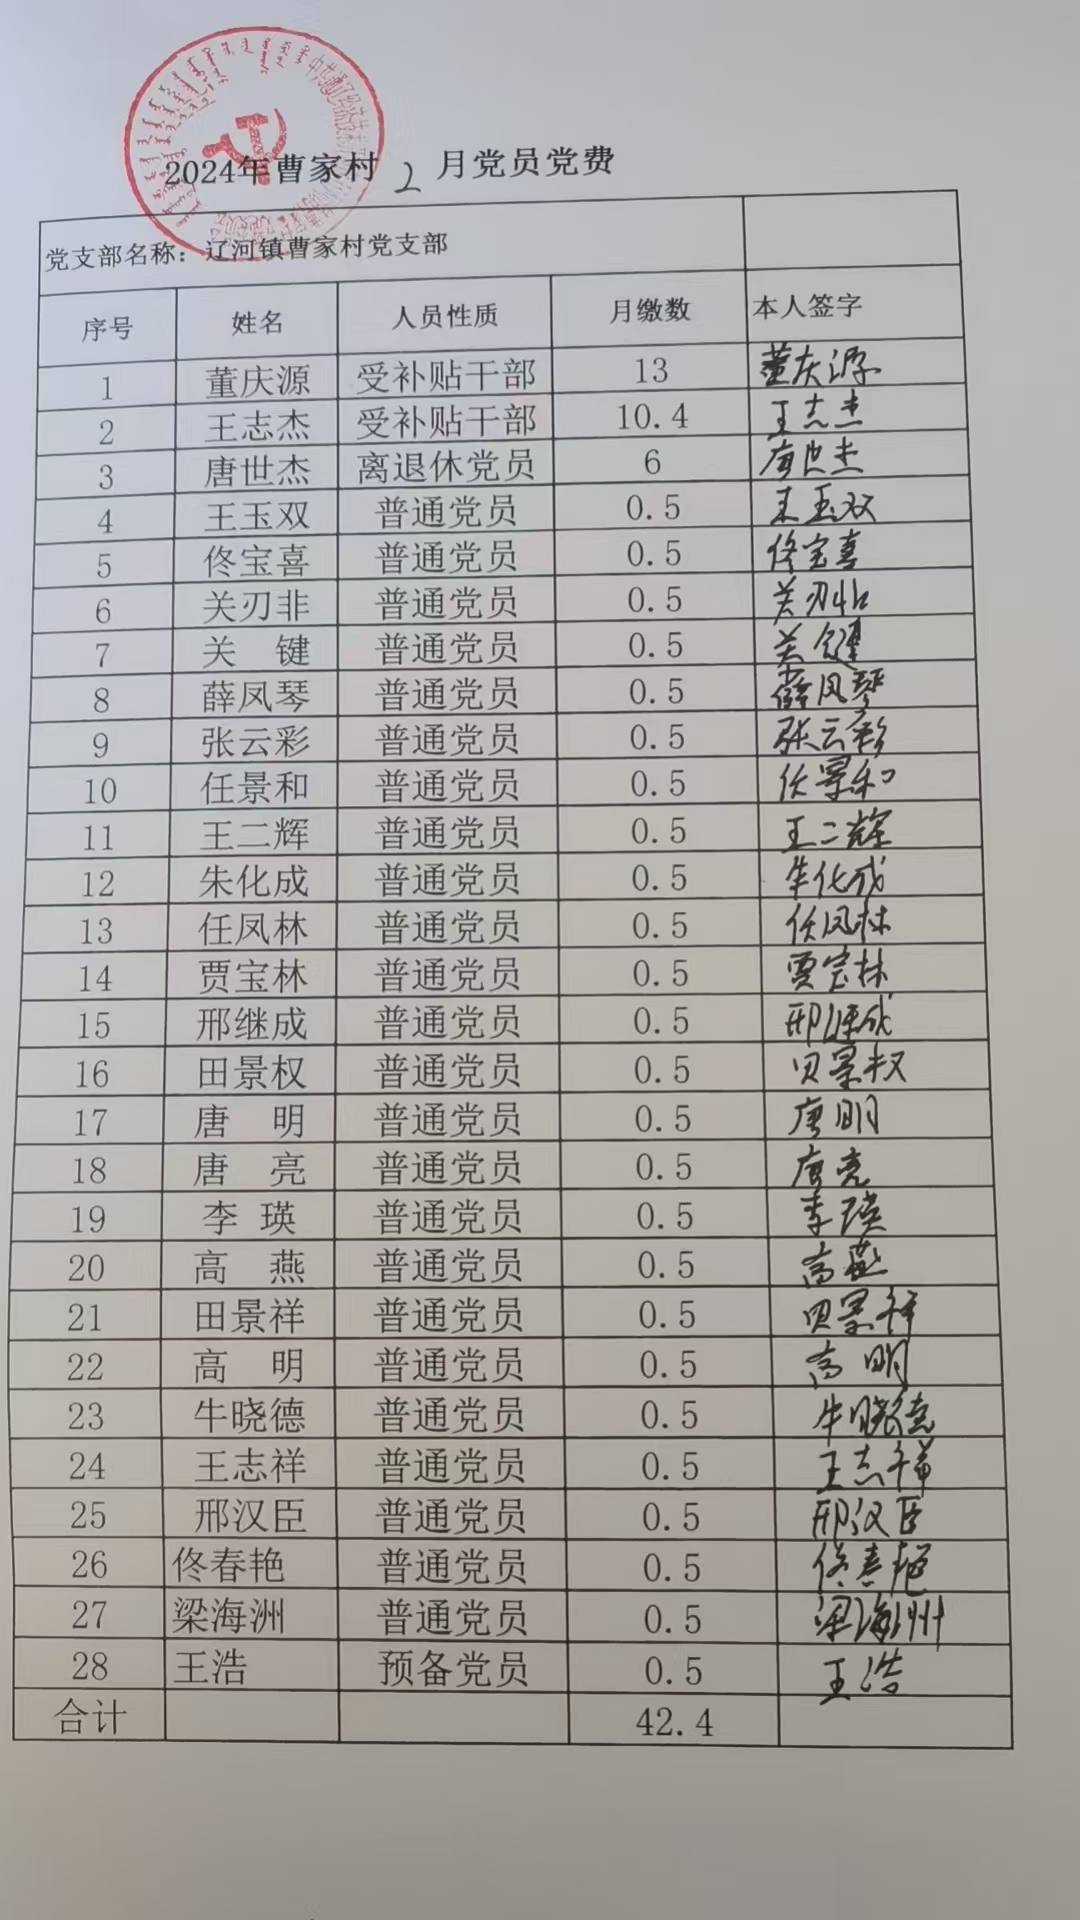 2024年曹家村 2 月党员党费
党支部名称：辽河镇曹家村党支部
序号 姓名 人员性质 月缴数 本人签字
1 董庆源 受补贴干部 13 董庆源
2 王志杰 受补贴干部 10.4 王志杰
3 唐世杰 离退休党员 6 唐世杰
4 王玉双 普通党员 0.5 王玉双
5 佟宝喜 普通党员 0.5 佟宝喜
6 关刃非 普通党员 0.5 关刃
7 关 键 普通党员 0.5 关键
8 薛凤琴 普通党员 0.5 薛凤琴
9 张云彩 普通党员 0.5 张云彩
10 任景和 普通党员 0.5 任景和
11 王二辉 普通党员 0.5 王二辉
12 朱化成 普通党员 0.5 朱化成
13 任凤林 普通党员 0.5 任凤林
14 贾宝林 普通党员 0.5 贾宝林
15 邢继成 普通党员 0.5 邢继成
16 田景权 普通党员 0.5 田景权
17 唐 明 普通党员 0.5 唐明
18 唐 亮 普通党员 0.5 唐亮
19 李 瑛 普通党员 0.5 李瑛
20 高 燕 普通党员 0.5 高燕
21 田景祥 普通党员 0.5 田景祥
22 高 明 普通党员 0.5 高明
23 牛晓德 普通党员 0.5 牛晓德
24 王志祥 普通党员 0.5 王志祥
25 邢汉臣 普通党员 0.5 邢汉臣
26 佟春艳 普通党员 0.5 佟春艳
27 梁海洲 普通党员 0.5 梁海洲
28 王浩 预备党员 0.5 王浩
合计 42.4